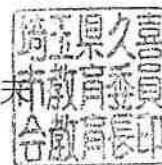 埼玉県久喜
市教育委員
会教育長印